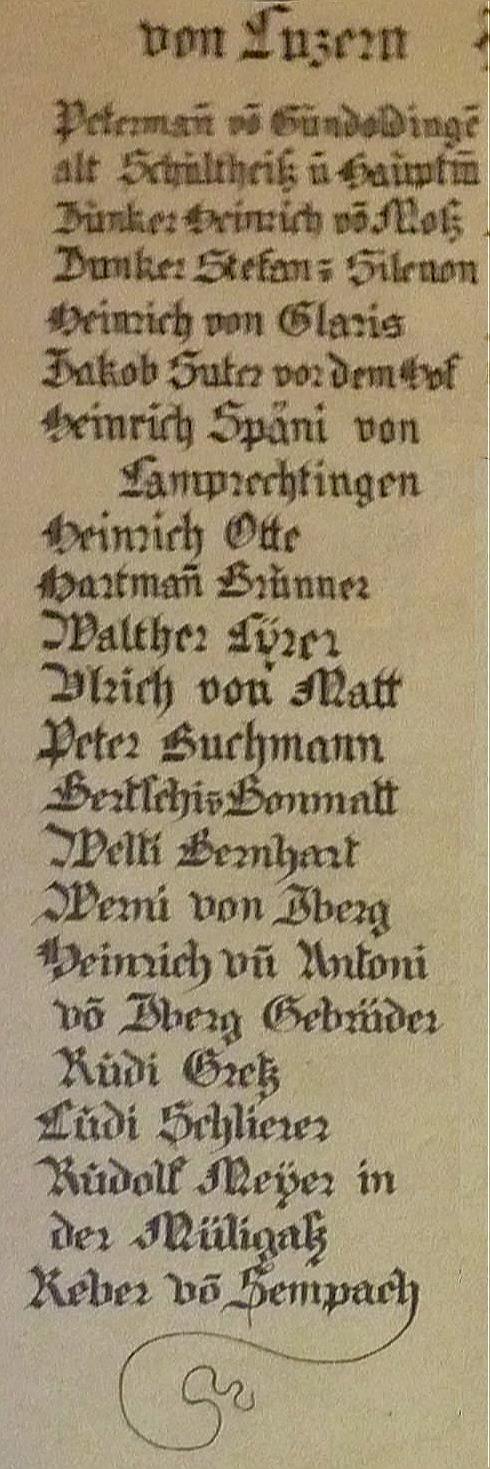 von Luzern
Petermañ võ Gundoldingẽ
alt Schultheiß ũ Hauptm̃
Junker Heinrich võ Moß
Junker Stefan v Silenon
Heinrich von Glaris
Jakob Suter vor dem Hof
Heinrich Späni von
Lamprechtingen
Heinrich Otte
Hartmañ Brunner
Walther Lÿrer
Ulrich von Matt
Peter Buchmann
Bertschi v Bonmatt
Welti Bernhart
Werni von Iberg
Heinrich vñ Antoni
võ Iberg Gebrüder
Růdi Gretz
Lůdi Schlierer
Růdolf Meÿer in
der Müligaß
Reber võ Sempach